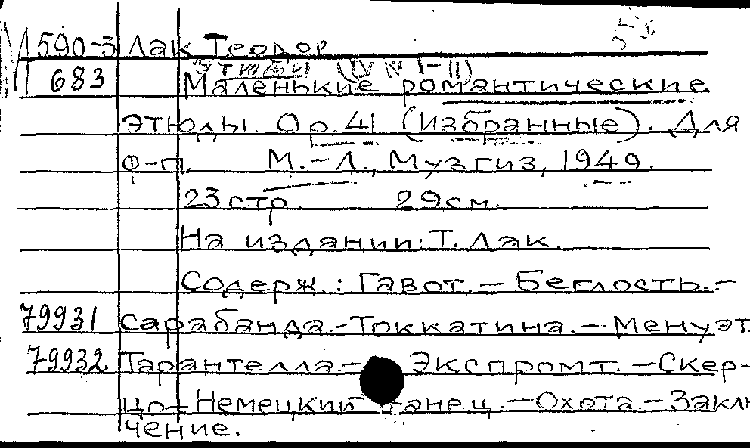 1590-3 Лак Теодор
683 Этюды (IV № 1-11)
Маленькие романтические
этюды. Op. 41 (Избранные). Для
ф-п. М.-Л., Музгиз, 1940.
23 стр. 29 см.
На издании: Т. Лак.
Содерж.: Гавот. – Беглость. –
79931 Сарабанда. – Токкатина. – Менуэт.
79932 Тарантелла – Экспромт. – Скер-
цо – Немецкий танец. – Охота. – Заклю-
чение.